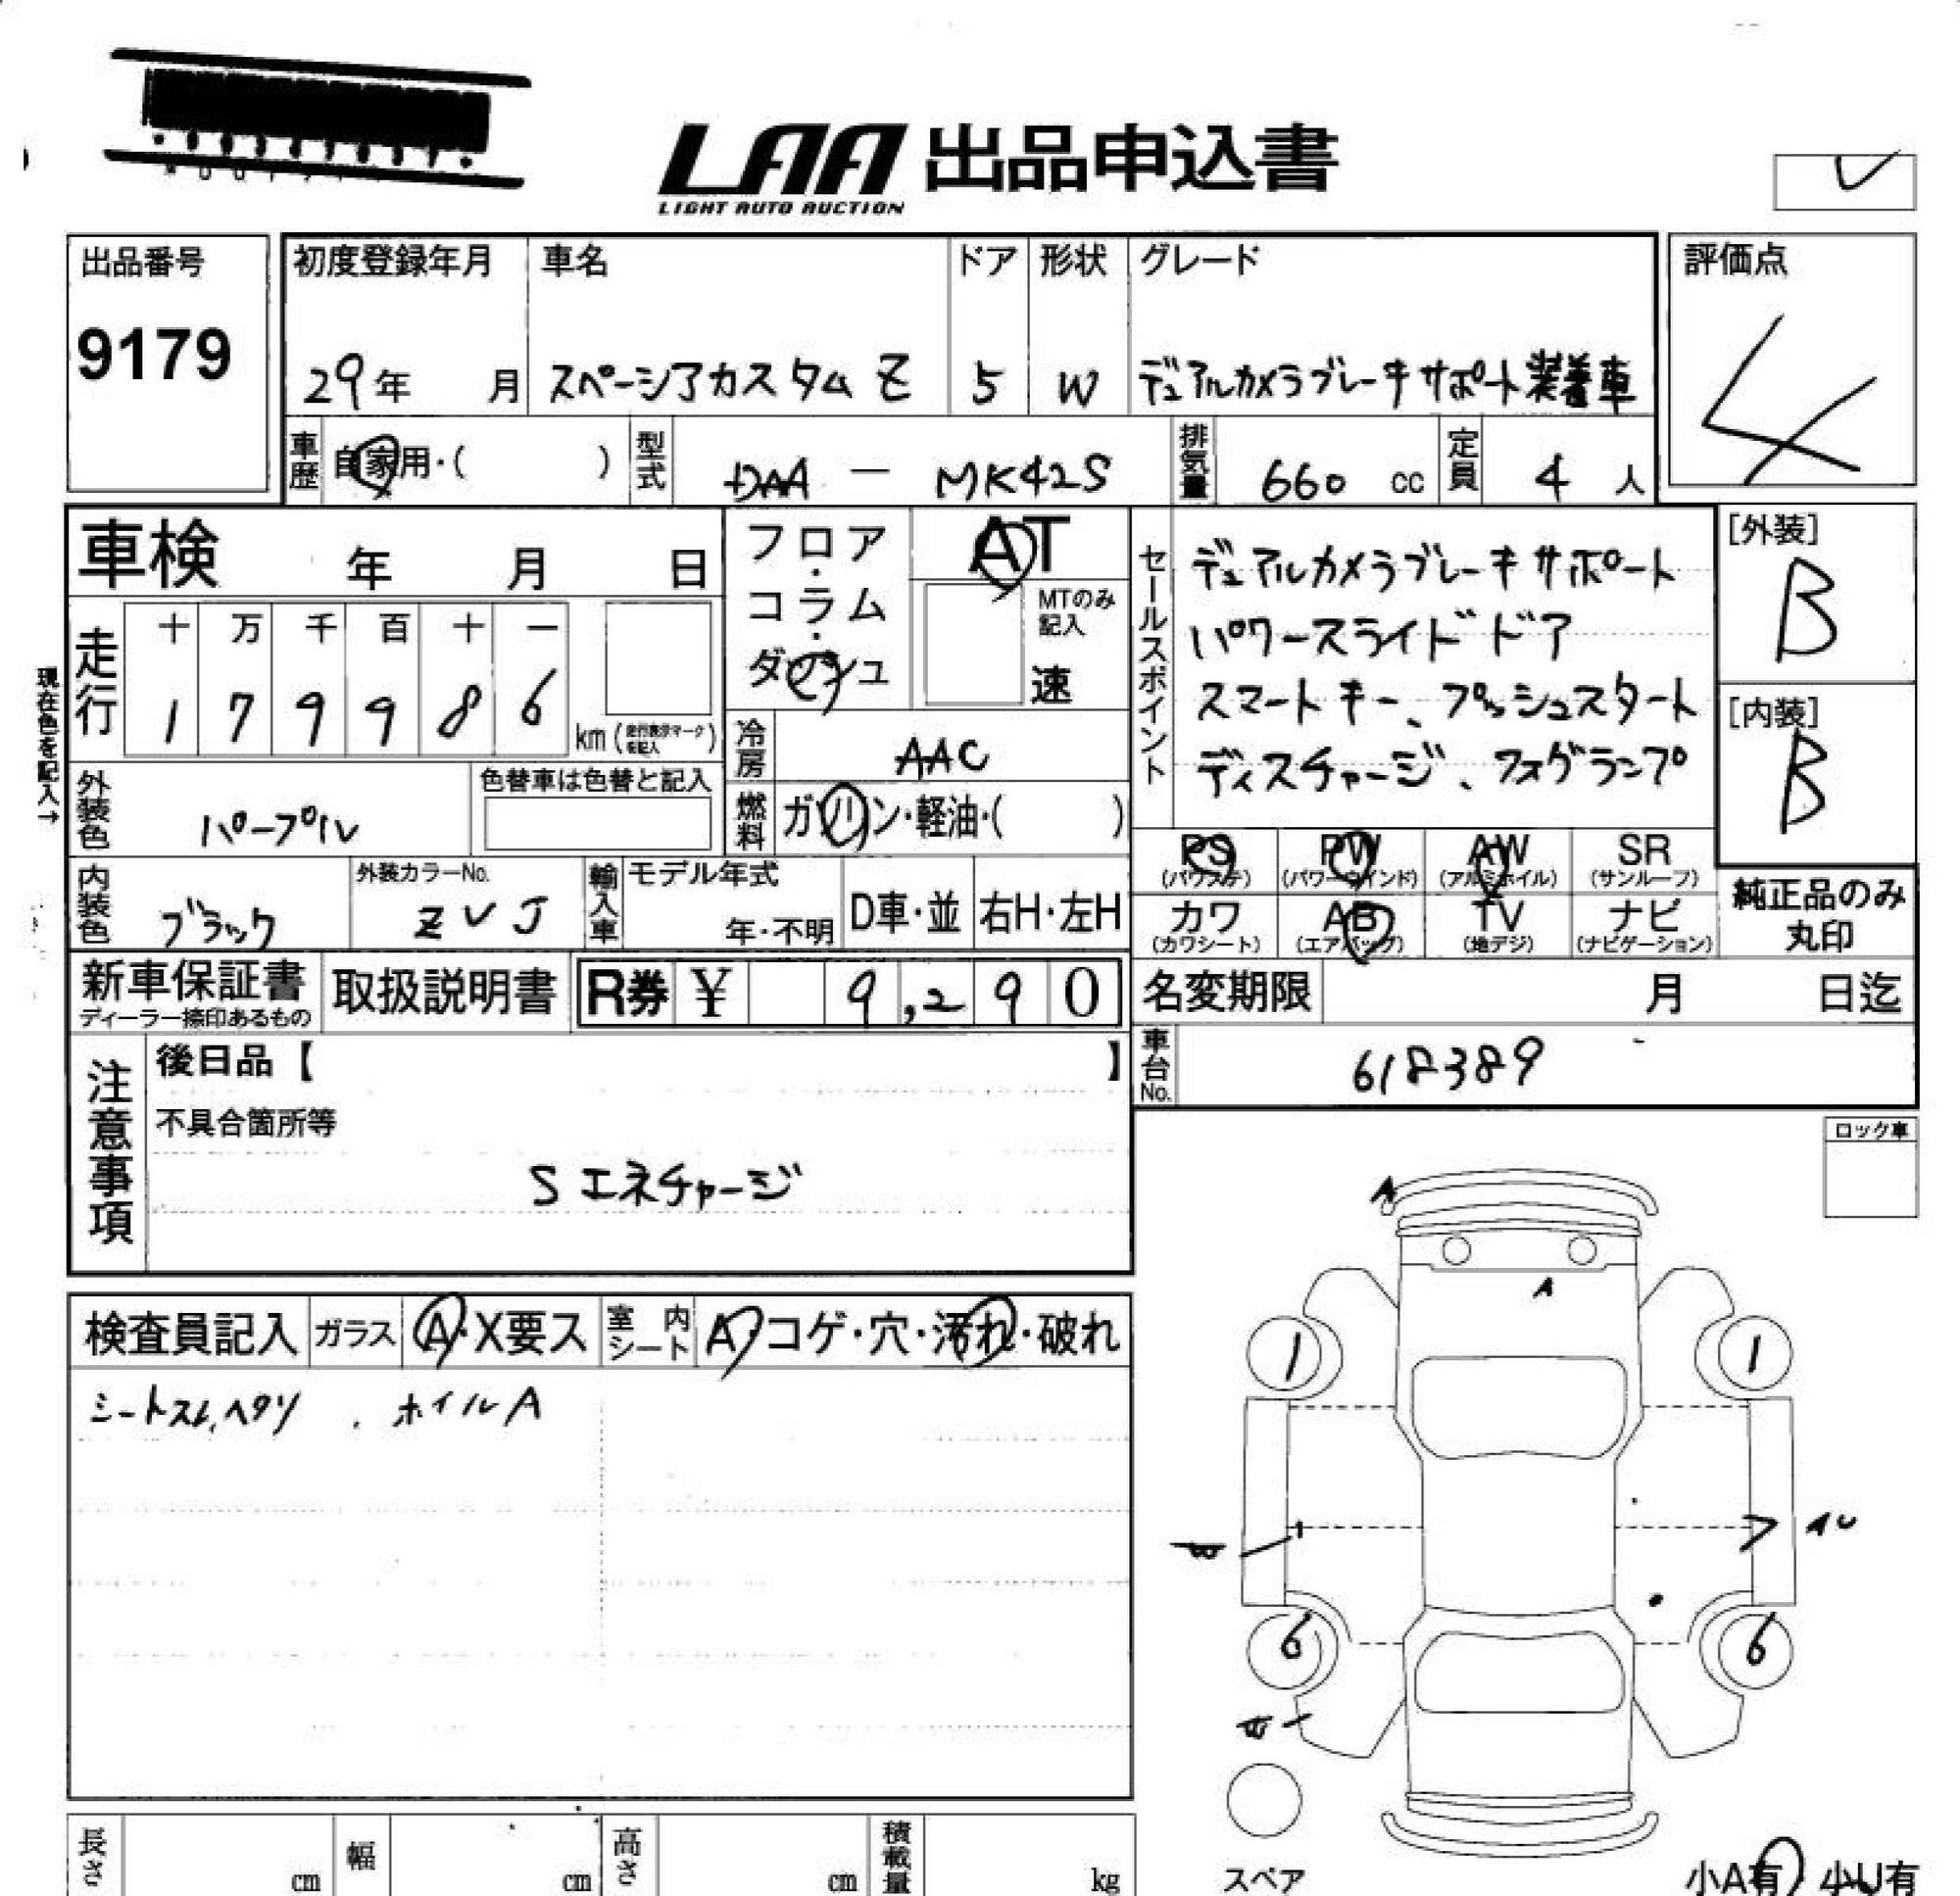 LAA 出品申込書
LIGHT AUTO AUCTION
出品番号
9179
初度登録年月 車名 ドア 形状 グレード
29年 月 スペーシアカスタム Z 5 W デュアルカメラブレーキサポート装着車
評価点
4
車歴 自家用・( ) 型式 DAA - MK42S 排気量 660 cc 定員 4 人
車検 年 月 日
フロア・コラム・ダッシュ
AT
MTのみ記入
速
走行 十 万 千 百 十 一
1 7 9 9 8 6 km (走行表示マークを記入)
現在色を記入→
冷房 AAC
燃料 ガソリン・軽油・( )
外装色 パープル
色替車は色替と記入
内装色 ブラック
外装カラーNo.
ZVJ
輸入車 モデル年式
年・不明 D車・並 右H・左H
セールスポイント
デュアルカメラブレーキサポート
パワースライドドア
スマートキー、プッシュスタート
ディスチャージ、フォグランプ
[外装]
B
[内装]
B
PS PW AW SR
(パワステ) (パワーウインド) (アルミホイル) (サンルーフ)
カワ AB TV ナビ
(カワシート) (エアバッグ) (地デジ) (ナビゲーション)
純正品のみ
丸印
新車保証書
ディーラー捺印あるもの
取扱説明書 R券 ¥ 9,290
名変期限 月 日迄
車台No. 618389
注意事項
後日品【 】
不具合箇所等
Sエネチャージ
ロック車
検査員記入 ガラス A・X要ス 室内シート A・コゲ・穴・汚れ・破れ
シートスレ、ヘタリ . ホイルA
A
A
1 1
6 6
スペア
小A有 小U有
長さ cm 幅 cm 高さ cm 積載量 kg